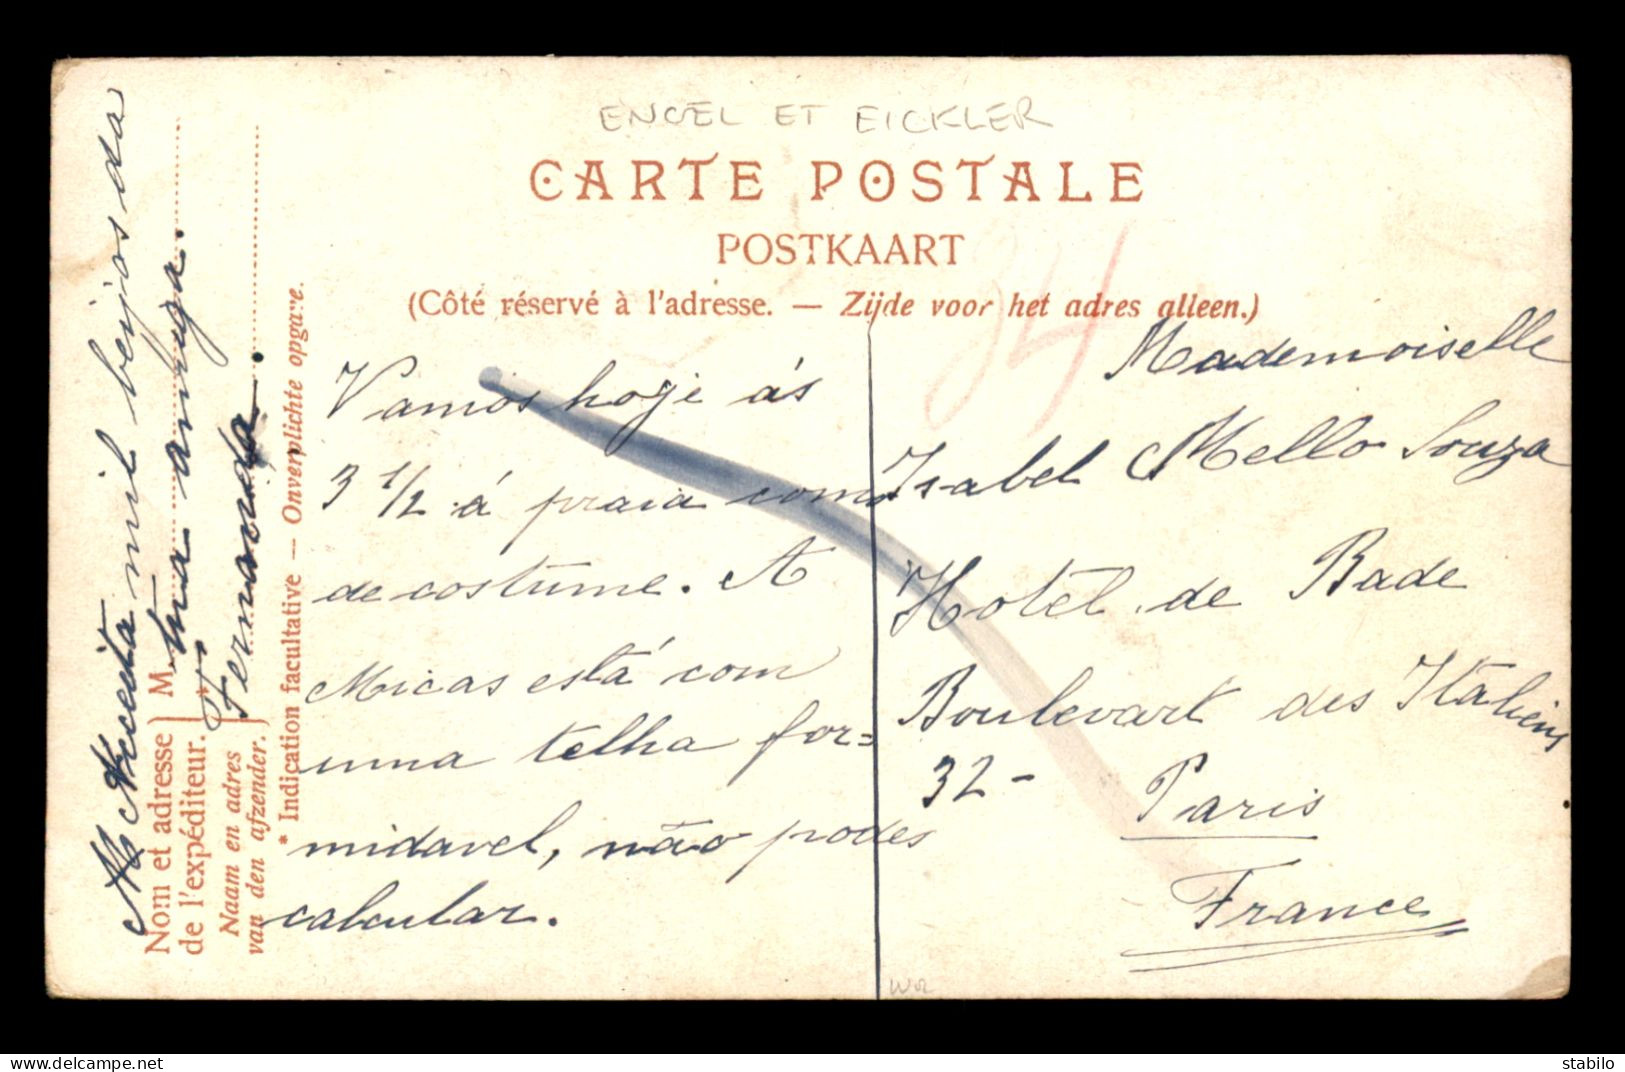 ENGEL ET EICKLER
CARTE POSTALE
POSTKAART
(Côté réservé à l'adresse. — Zijde voor het adres alleen.)
34
Vamos hoje ás
3 1/2 á praia como
de costume. A
Micas está com
uma telha for=
midavel, não podes
calcular.
Acceita mil beijos da
tua amiga.
Fernanda.
Nom et adresse
de l'expéditeur.
} M
*
Naam en adres
van den afzender.
}
* Indication facultative — Onverplichte opgave.
Mademoiselle
Isabel Mello Souza
Hotel de Bade
Boulevart des Italiens
32-
Paris
France
stabilo